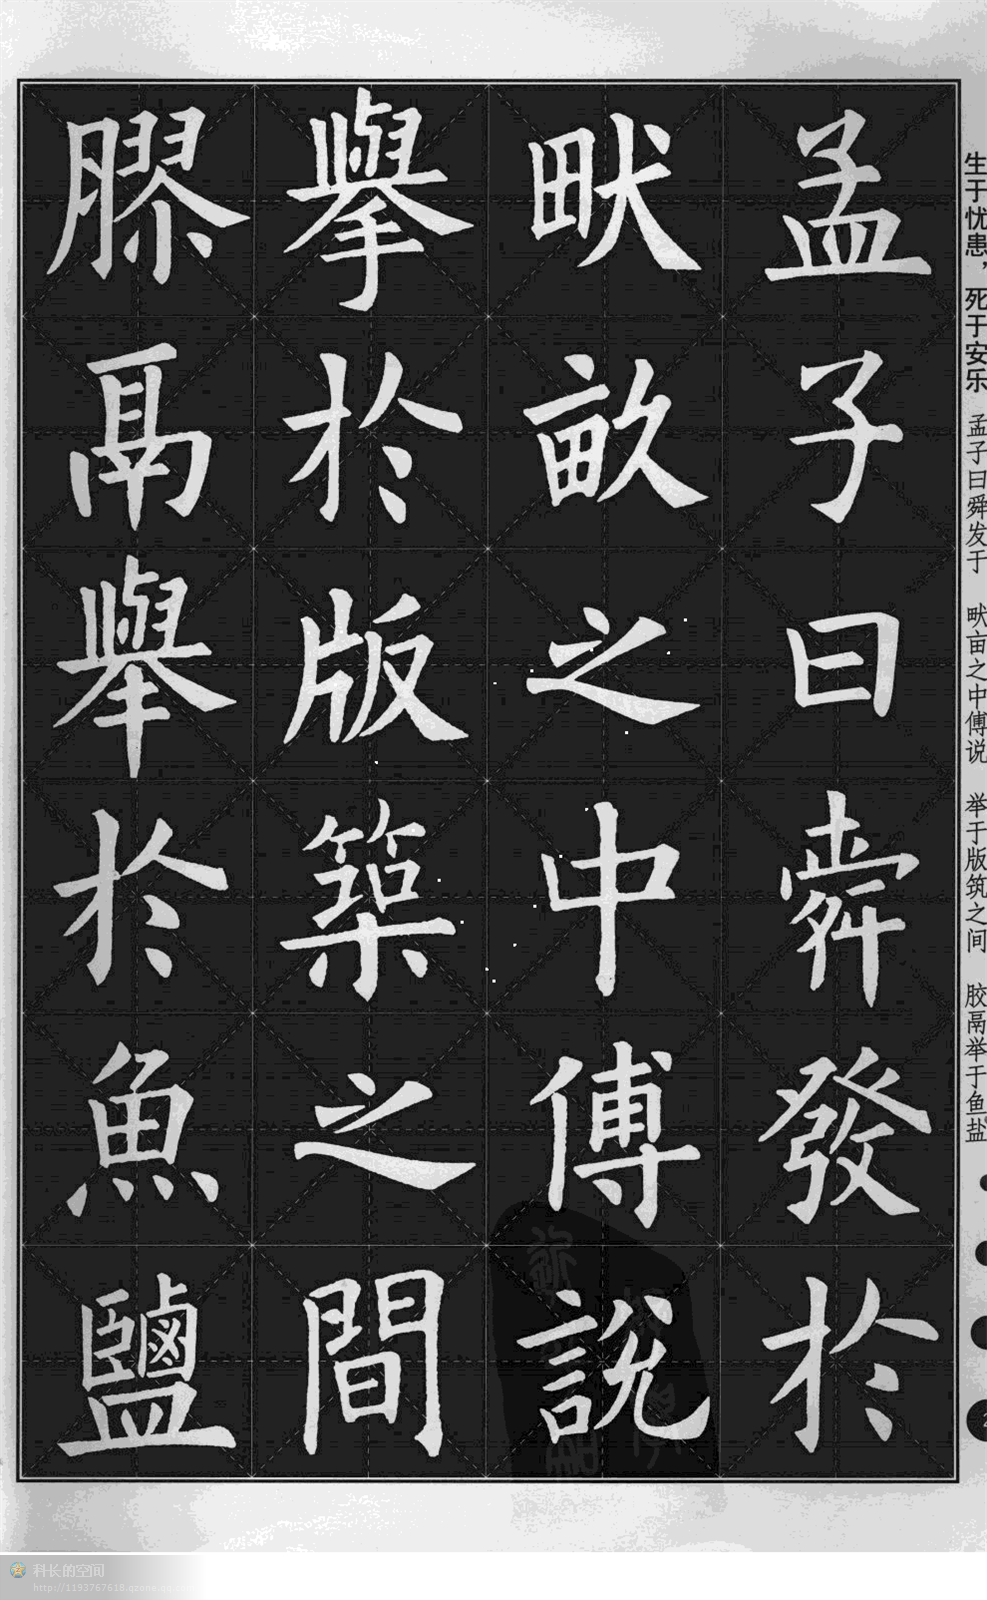 生于忧患，死于安乐 孟子曰舜发于 畎亩之中傅说 举于版筑之间 胶鬲举于鱼盐
孟子曰舜發於
畎畝之中傅說
擧於版築之間
膠鬲舉於魚鹽
科长的空间
http://1193767618.qzone.qq.com